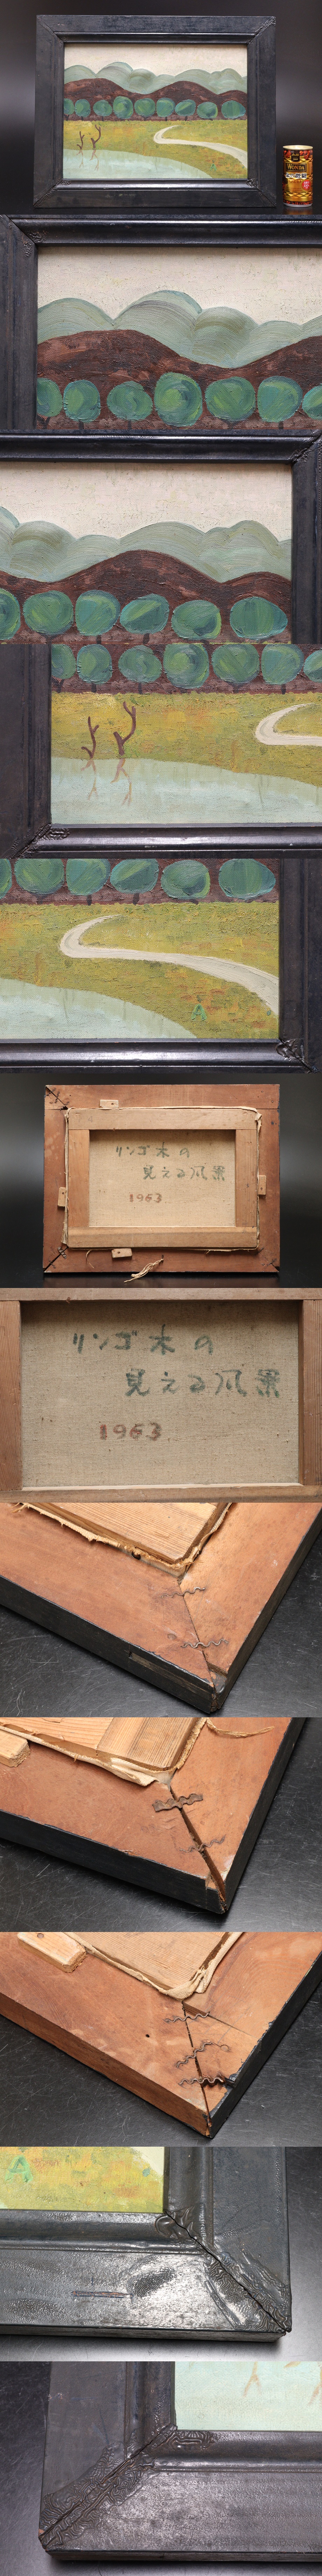 WONDA
A
リンゴ木の
見える風景
1963
リンゴ木の
見える風景
1963
A